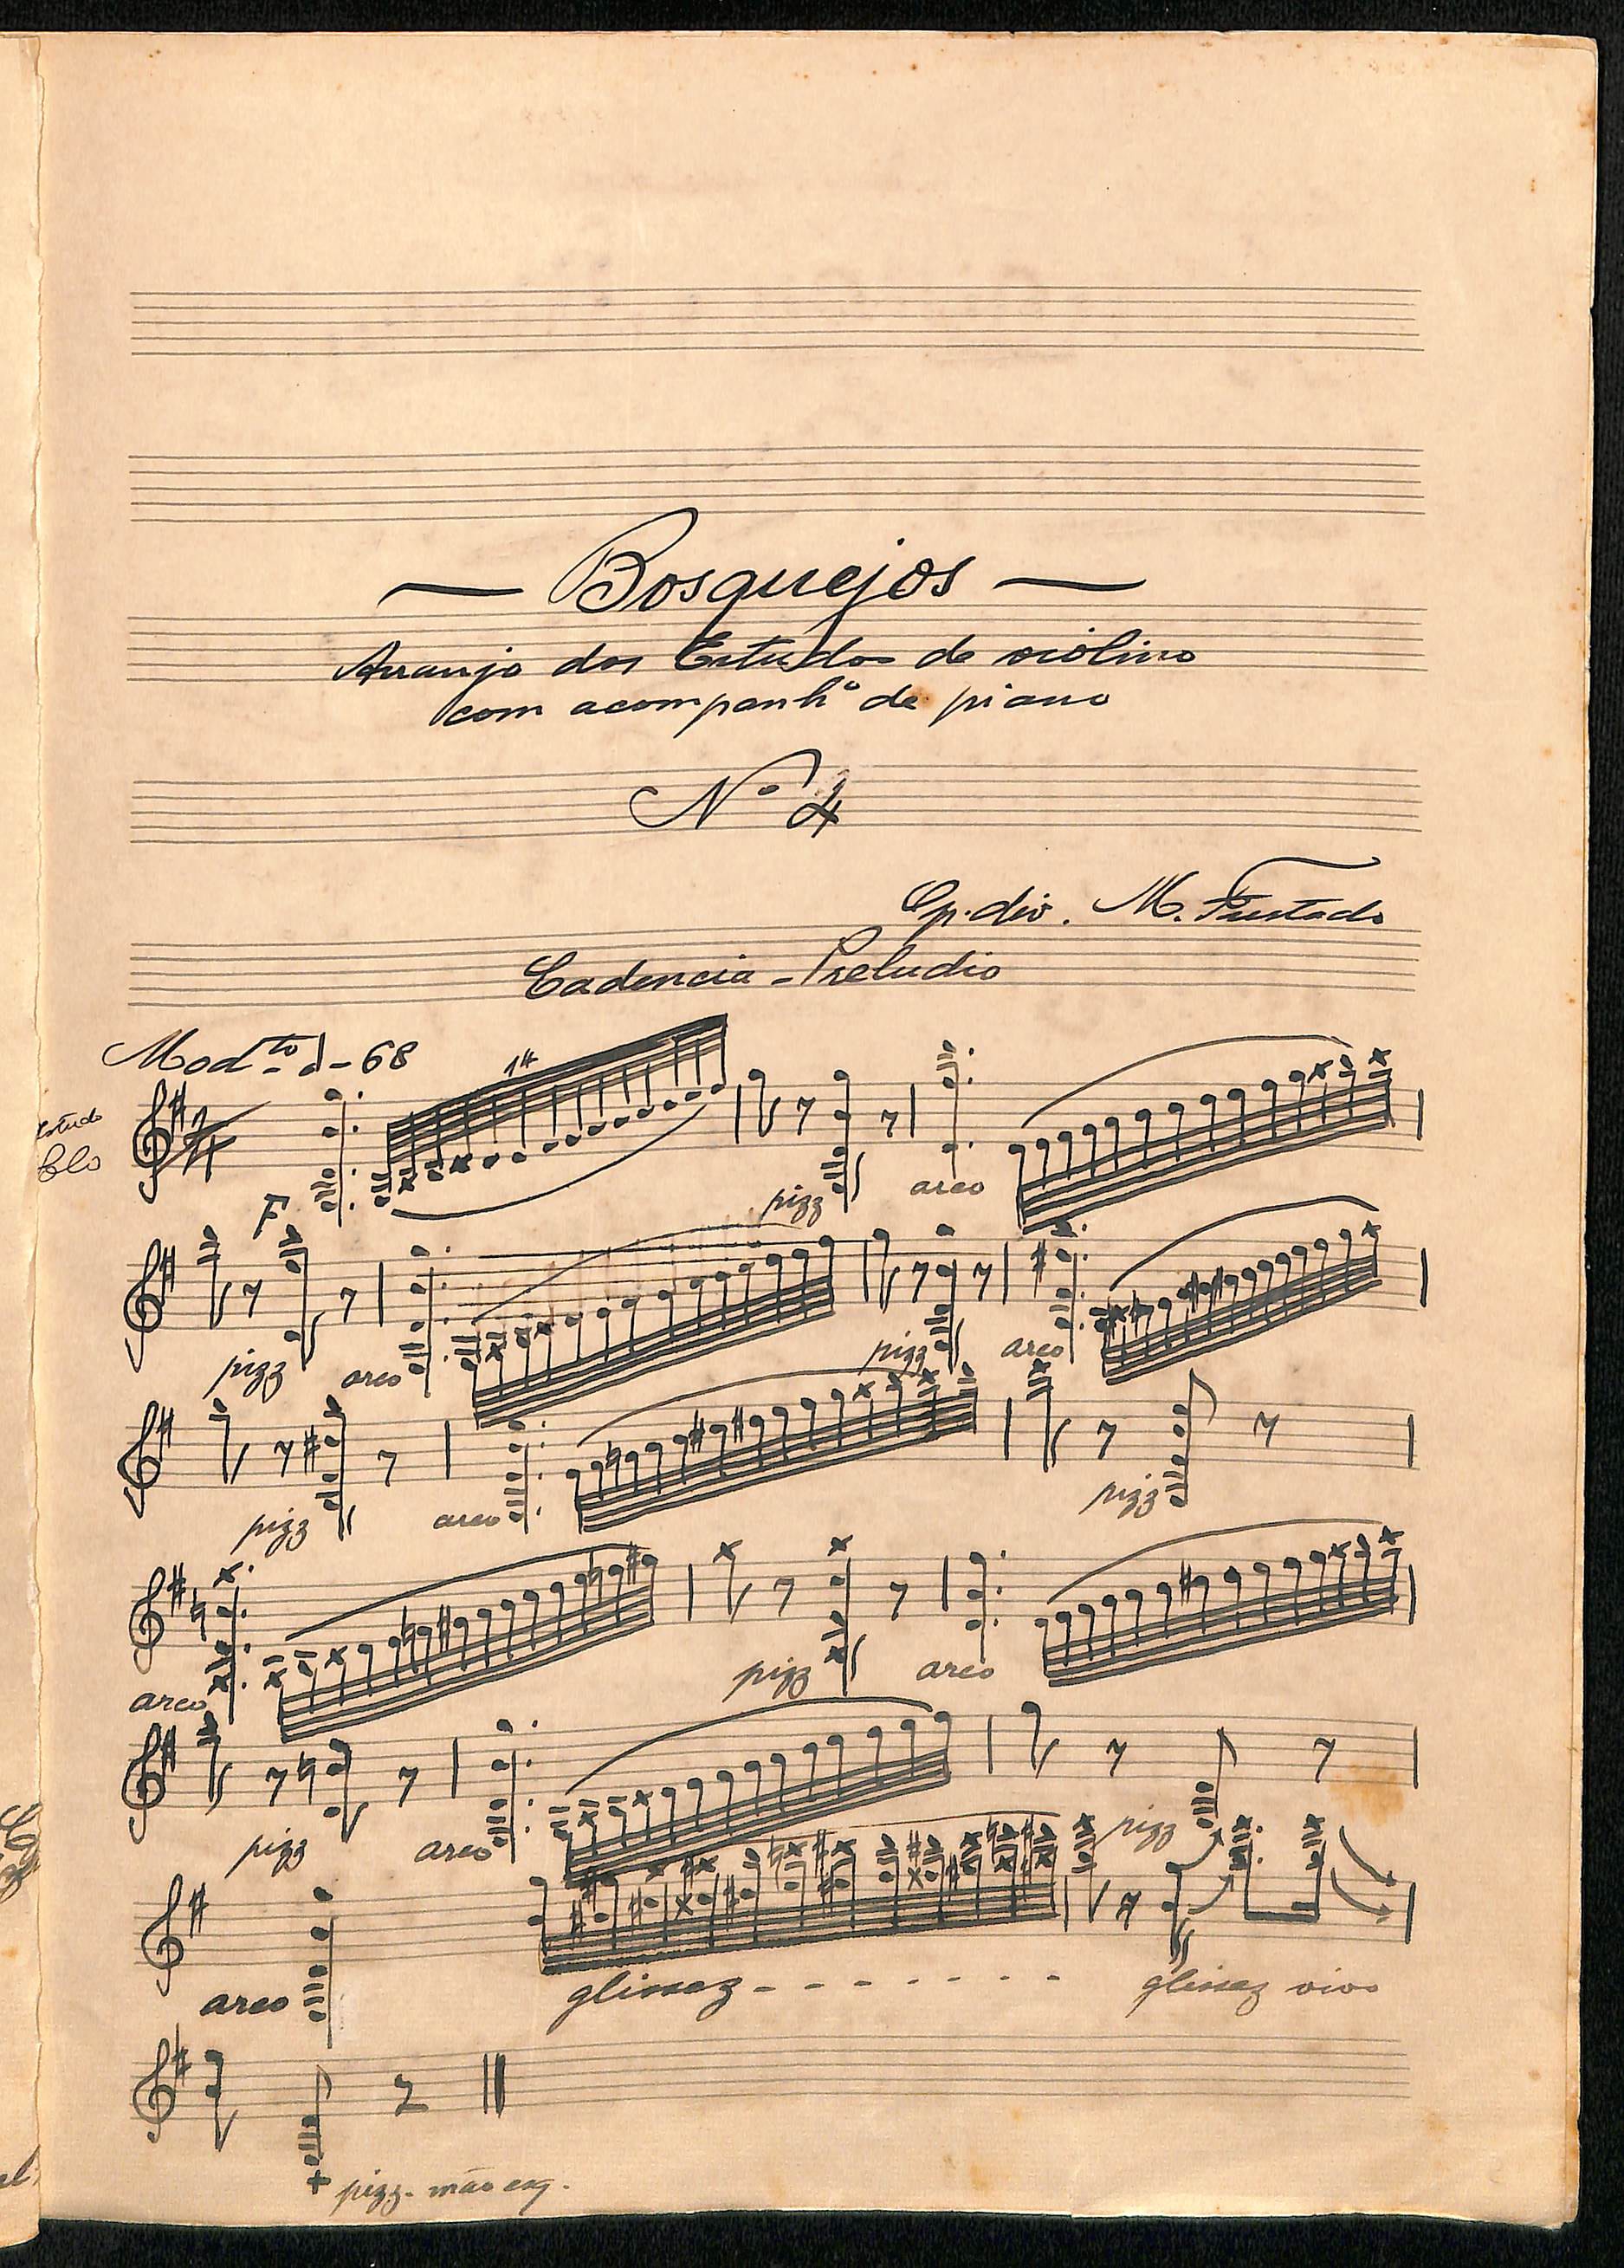 Bosquejos
Arranjo dos Estudos de violino
com acompanhº de piano
Nº 4
Op. div. M. Furtado
Cadencia - Preludio
Modto - 68
14
F pizz arco
pizz arco pizz arco
pizz arco pizz
arco pizz arco
pizz arco pizz
arco glissez - - - - - - - glissez vivo
pizz. mão esq.